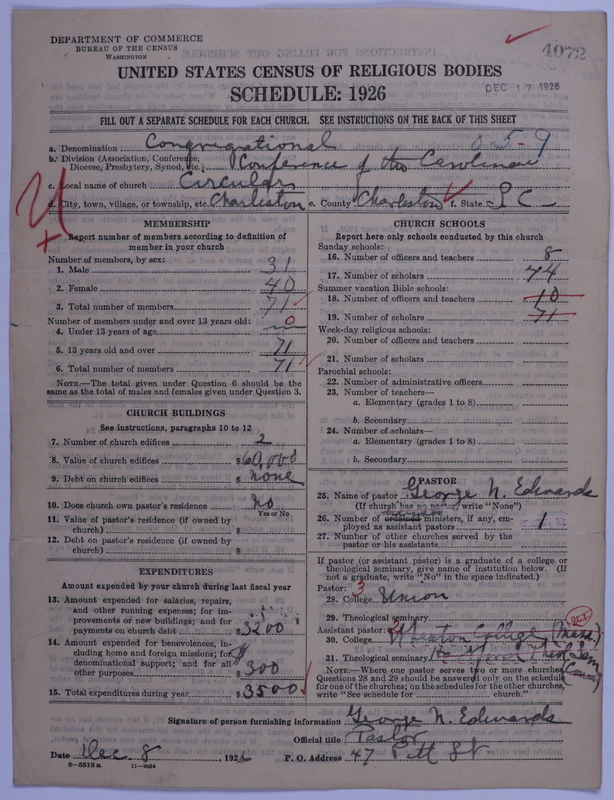 DEPARTMENT OF COMMERCE
BUREAU OF THE CENSUS
WASHINGTON
4072
UNITED STATES CENSUS OF RELIGIOUS BODIES
SCHEDULE: 1926
DEC 17 1926
FILL OUT A SEPARATE SCHEDULE FOR EACH CHURCH. SEE INSTRUCTIONS ON THE BACK OF THIS SHEET
a. Denomination Congregational 05-9
b. Division (Association, Conference, Diocese, Presbytery, Synod, etc.) Conference of the Carolinas
c. Local name of church Circular
d. City, town, village, or township, etc. Charleston e. County Charleston f. State S C
MEMBERSHIP
Report number of members according to definition of member in your church
Number of members, by sex:
1. Male 31
2. Female 40
3. Total number of members 71
Number of members under and over 13 years old:
4. Under 13 years of age 0
5. 13 years old and over 71
6. Total number of members 71
NOTE.—The total given under Question 6 should be the same as the total of males and females given under Question 3.
CHURCH BUILDINGS
See instructions, paragraphs 10 to 12
7. Number of church edifices 2
8. Value of church edifices $60,000
9. Debt on church edifices $ none
10. Does church own pastor's residence no
Yes or No
11. Value of pastor's residence (if owned by church) $
12. Debt on pastor's residence (if owned by church) $
EXPENDITURES
Amount expended by your church during last fiscal year
13. Amount expended for salaries, repairs, and other running expenses; for improvements or new buildings; and for payments on church debt $3200
14. Amount expended for benevolences, including home and foreign missions; for denominational support; and for all other purposes $300
15. Total expenditures during year $3500
CHURCH SCHOOLS
Report here only schools conducted by this church
Sunday schools:
16. Number of officers and teachers 8
17. Number of scholars 44
Summer vacation Bible schools:
18. Number of officers and teachers 10
19. Number of scholars 71
Week-day religious schools:
20. Number of officers and teachers
21. Number of scholars
Parochial schools:
22. Number of administrative officers
23. Number of teachers—
a. Elementary (grades 1 to 8)
b. Secondary
24. Number of scholars—
a. Elementary (grades 1 to 8)
b. Secondary
PASTOR
25. Name of pastor George N. Edwards
(If church has no pastor, write "None")
26. Number of ordained ministers, if any, employed as assistant pastors 1
27. Number of other churches served by the pastor or his assistants
If pastor (or assistant pastor) is a graduate of a college or theological seminary, give name of institution below. (If not a graduate, write "No" in the space indicated.)
Pastor: 3
28. College
29. Theological seminary
Assistant pastor:
30. College College
31. Theological seminary
NOTE.—Where one pastor serves two or more churches, Questions 28 and 29 should be answered only on the schedule for one of the churches; on the schedules for the other churches, write "See schedule for church."
Signature of person furnishing information George N. Edwards
Official title Pastor
Date Dec 8, 1926 P. O. Address 47 Pitt St
8—5518a 11—9624